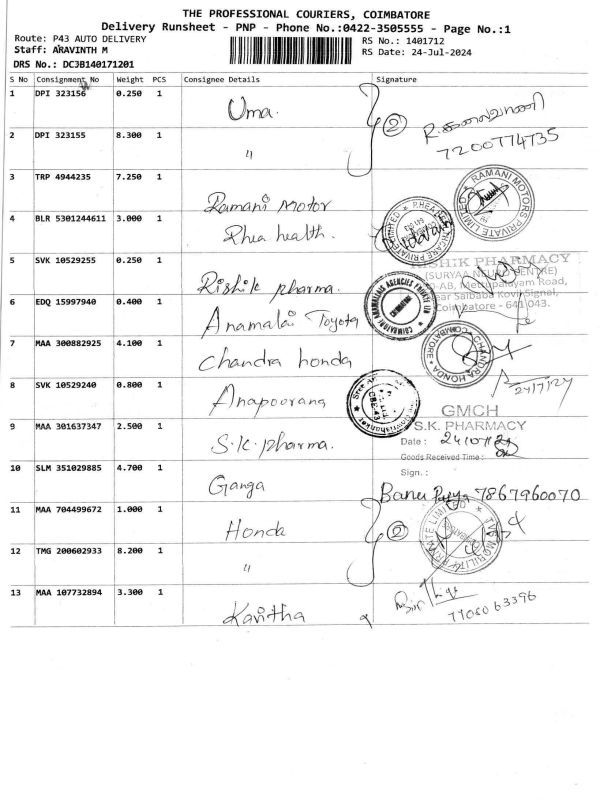 THE PROFESSIONAL COURIERS, COIMBATORE
Delivery Runsheet - PNP - Phone No.:0422-3505555 - Page No.:1
Route: P43 AUTO DELIVERY
RS No.: 1401712
Staff: ARAVINTH M
RS Date: 24-Jul-2024
DRS No.: DCJB140171201
S No Consignment No Weight PCS Consignee Details Signature
1 DPI 323156 0.250 1 Uma. 2
7200774735
2 DPI 323155 8.300 1 "
3 TRP 4944235 7.250 1 Ramani Motor
RAMANI MOTORS PRIVATE LIMITED
4 BLR 5301244611 3.000 1 Rhea health.
5 SVK 10529255 0.250 1 Rishik pharma.
RISHIK PHARMACY
Mettupalayam Road,
Near Saibaba Kovil Signal,
Coimbatore - 641 043.
6 EDQ 15997940 0.400 1 Anamalai Toyota
COIMBATORE
7 MAA 300882925 4.100 1 Chandra honda
CHANDRA HONDA
COIMBATORE
24/7/24
8 SVK 10529240 0.800 1 Anapoorana
9 MAA 301637347 2.500 1 S.K. pharma.
GMCH
S.K. PHARMACY
Date :
Goods Received Time :
Sign. :
10 SLM 351029885 4.700 1 Ganga
7867960070
11 MAA 704499672 1.000 1 Honda 2
TVS MOBILITY PRIVATE LIMITED
12 TMG 200602933 8.200 1 "
13 MAA 107732894 3.300 1 Kavitha